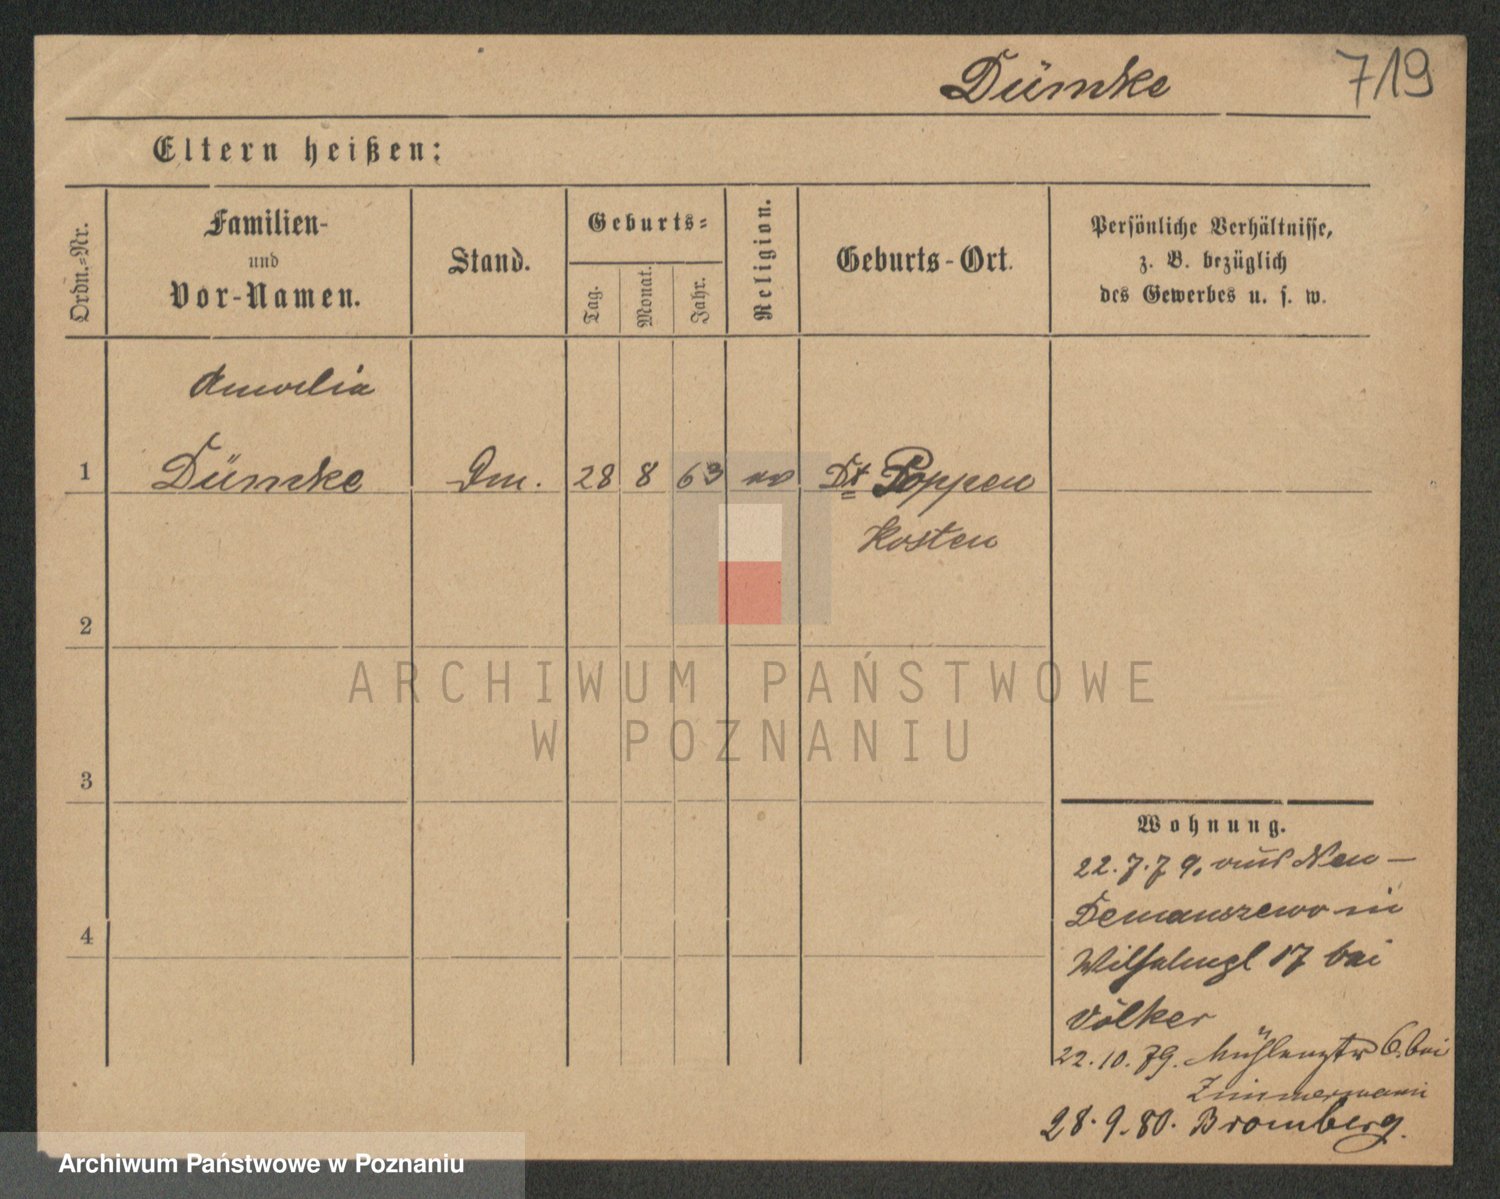 Dümke
719
Eltern heißen:
Ordn.-Nr.
Familien-
und
Vor-Namen.
Stand.
Geburts-
Tag.
Monat.
Jahr.
Religion.
Geburts-Ort.
Persönliche Verhältnisse,
z. B. bezüglich
des Gewerbes u. s. w.
Amelia
1 Dümke 28 8 63 Poppen
Kosten
2
3
4
Wohnung.
22.7.79. aus Neu-
Demanszewo in
17 bei
Völker
22.10.79. 6. bei
Zimmermann
28.9.80. Bromberg.
ARCHIWUM PAŃSTWOWE
W POZNANIU
Archiwum Państwowe w Poznaniu